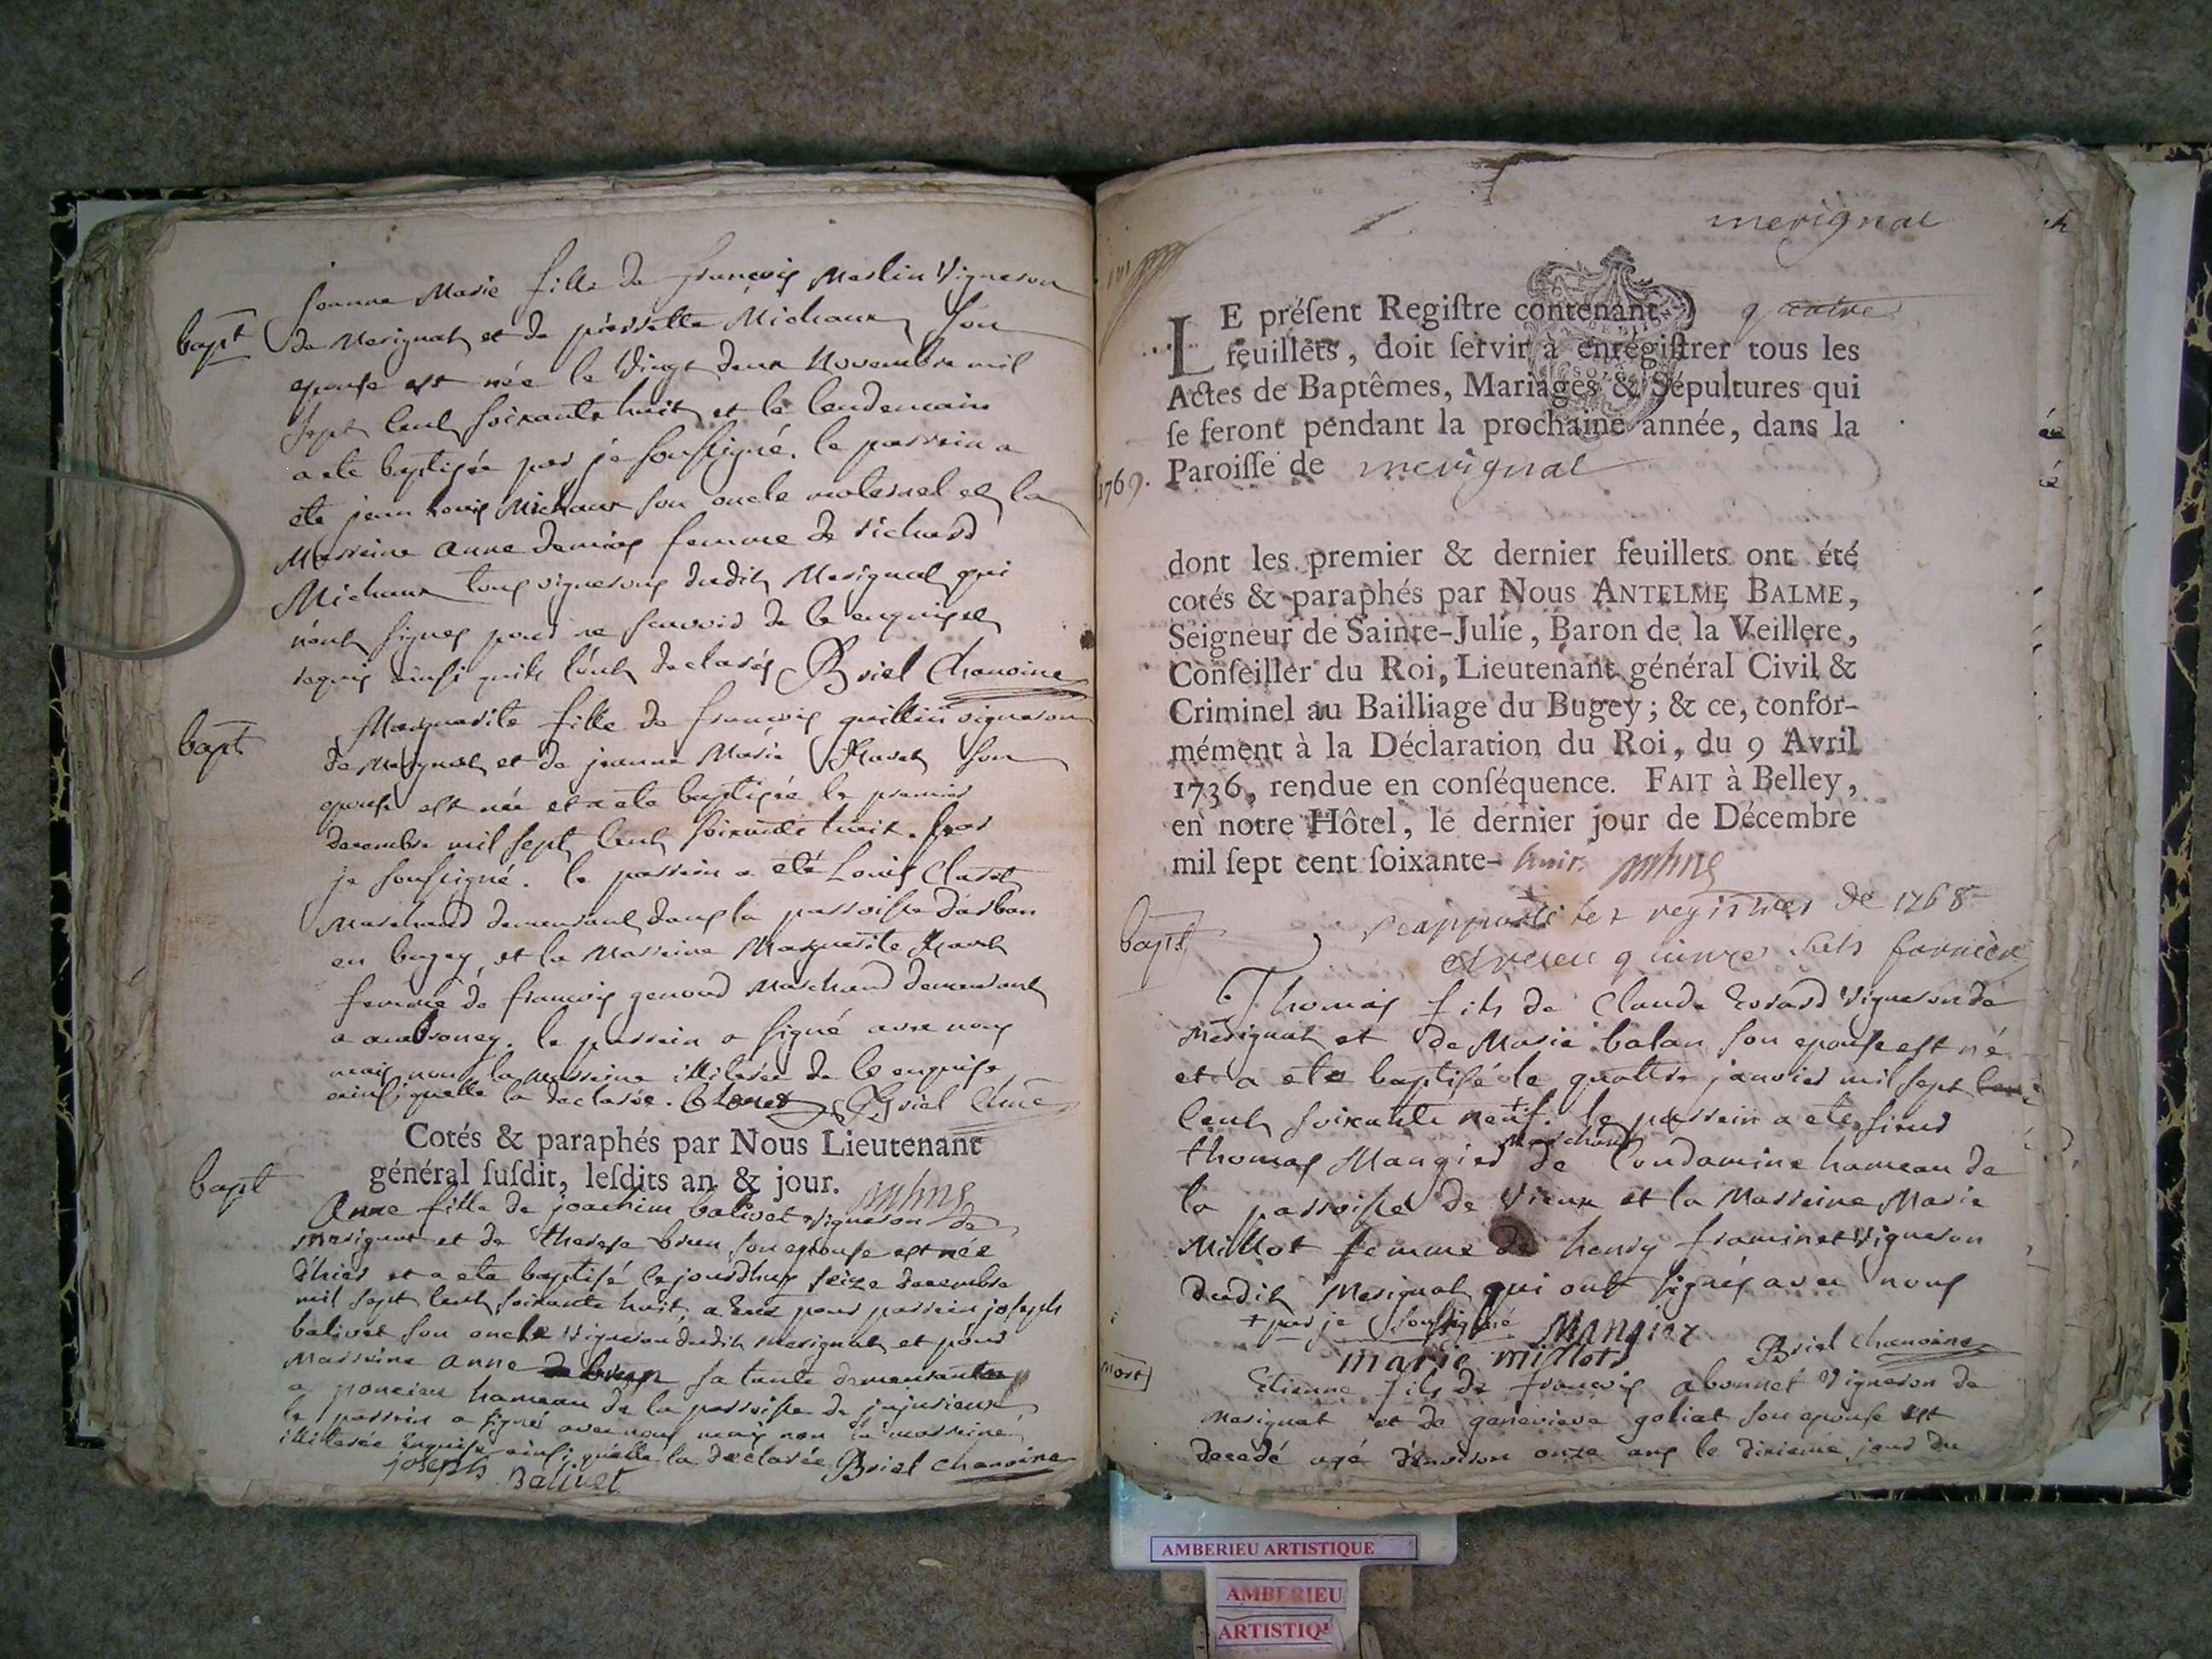 bapt
Jeanne Marie fille de françois Merlin Vigneron
de Merignat et de pierrette Michaux son
epouse est née le Vingt deux Novembre mil
Sept Cent soixante huit et le lendemain
a ete baptisée par je soussigné. le parrein a
ete jean Louis Michaux son oncle maternel et la
Marreine anne femme de richard
Michaux tous vignerons dudit Merignat qui
n'ont signés pour ne sçavoir de ce enquis et
requis ainsi quils l'ont declarés Briel Chanoine
bapt
Marguerite fille de françois guillin vigneron
de Merignat et de jeanne Marie son
epouse est née et a ete baptisée le premier
decembre mil sept Cent soixante huit. par
je soussigné. le parrein a été Louis Claret
Marchand demeurant dans la parroisse d'arban
en bugey, et la Marreine Marguerite
femme de françois genoud Marchand demeurant
a ambroney. le parrein a signé avec nous
mais non la Marreine illiterée de ce enquise
ainsi quelle la declarée. Claret Briel Chne
Cotés & paraphés par Nous Lieutenant
général ſuſdit, leſdits an & jour.
bapt
Anne fille de joachim balivet Vigneron de
Merignat et de therese brun son epouse est née
d'hier et a ete baptisé le jourdhuy seize decembre
mil sept Cent soixante huit, a Eue pour parrein joseph
balivet son oncle Vigneron dudit merignat et pour
Marreine anne sa tante demeurante
a poncieu hameau de la parroisse de jujurieux
le parrein a signé avec nous mais non la marreine
illiterée Enquise ainsi quelle la declarée Briel Chanoine
joseph Balivet
merignat
LE préſent Regiſtre contenant quatre
feuillets, doit ſervir à enrégiſtrer tous les
Actes de Baptêmes, Mariages & Sépultures qui
ſe feront pendant la prochaine année, dans la
1769. Paroiſſe de merignat
dont les premier & dernier feuillets ont été
cotés & paraphés par Nous ANTELME BALME,
Seigneur de Sainte-Julie, Baron de la Veillere,
Conſeiller du Roi, Lieutenant général Civil &
Criminel au Bailliage du Bugey; & ce, confor-
mément à la Déclaration du Roi, du 9 Avril
1736, rendue en conſéquence. FAIT à Belley,
en notre Hôtel, le dernier jour de Décembre
mil ſept cent ſoixante- huit.
rapporté les registres de 1768
et receu quinze sols
bapt
Thomas fils de Claude Evrard Vigneron de
Merignat et de Marie balan son epouse est né
et a ete baptisé le quattre janvier mil sept
Cent soixante neuf. + le parrein a ete sieur
thomas Mangier Marchand de Condamine hameau de
la parroisse de Vieux et la Marreine Marie
Millot femme de henry framinet Vigneron
dudit Merignat qui ont signés avec nous
+ par je soussigné Mangier
marie millot Briel Chanoine
Mort
Etienne fils de françois abonnet Vigneron de
Merignat et de genevieve goliat son epouse est
decedé agé d'environ onze ans le dixieme jour du
AMBERIEU ARTISTIQUE
AMBERIEU
ARTISTIQ